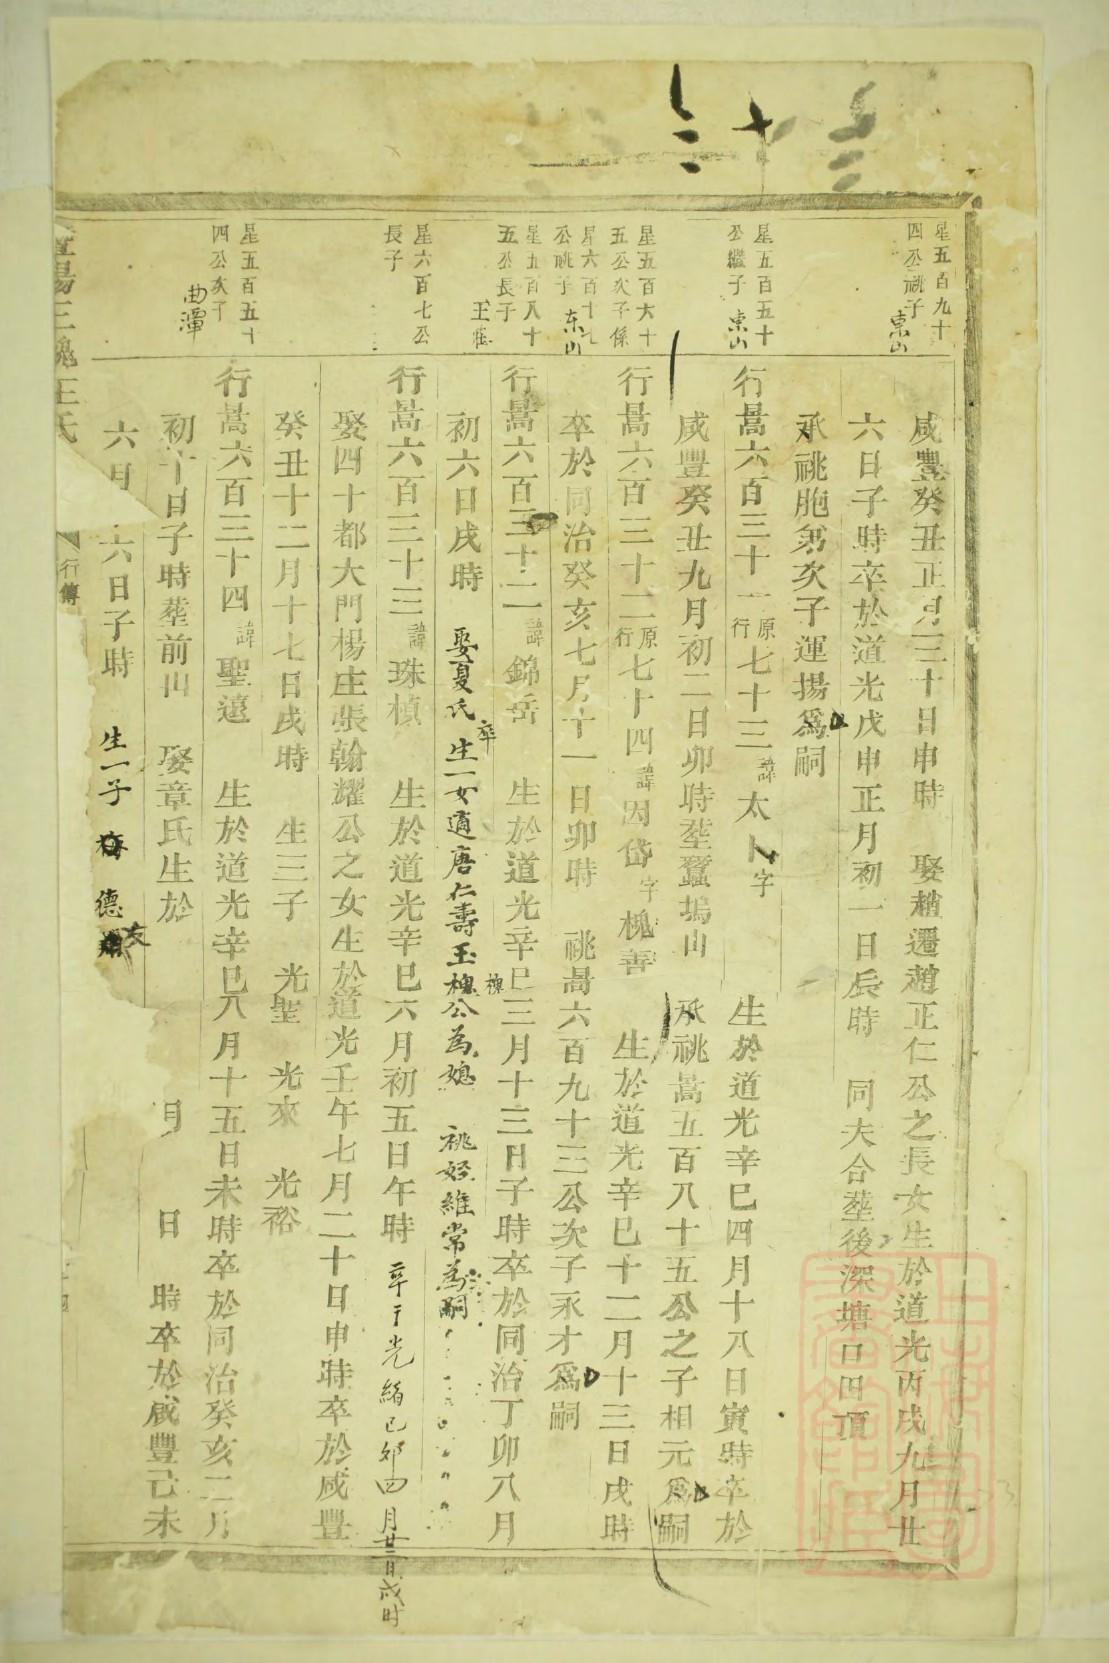 星五百九十
四公祧子
東山
咸豐癸丑正月三十日申時 娶趙遷趙正仁公之長女生於道光丙戌九月廿
六日子時卒於道光戊申正月初一日辰時 同夫合塟後深塘口四頂
承祧胞弟次子運揚爲嗣
星五百五十
公繼子
東山
行暠六百三十一原行七十三諱太 字 生於道光辛巳四月十八日寅時卒於
咸豐癸丑九月初二日卯時塟蠶塢山 承祧暠五百八十五公之子相元爲嗣
星五百六十
五公次子係
星六百十
公祧子
东山
行暠六百三十二原行七十四諱因岱字槐善 生於道光辛巳十二月十三日戌時
卒於同治癸亥七月十一日卯時 祧暠六百九十三公次子永才爲嗣
星五百八十
五公長子
王莊
行暠六百三十二諱錦岳 生於道光辛巳三月十三日子時卒於同治丁卯八月
初六日戌時 娶夏氏 卒 生一女適唐仁壽玉槐公為媳 祧姪維常為嗣
星六百七公
長子
行暠六百三十三諱珠楨 生於道光辛巳六月初五日午時 卒于光緒己卯四月廿二日戌时
娶四十都大門楊庄張翰耀公之女生於道光壬午七月二十日申時卒於咸豐
癸丑十二月十七日戌時 生三子 光聖 光來 光裕
星五百五十
四公次子
曲潭
行暠六百三十四諱聖遠 生於道光辛巳八月十五日未時卒於同治癸亥二月
初十日子時塟前山 娶章氏生於 月 日 時卒於咸豐己未
六月 六日子時 生一子 德友
三槐王氏
行傳